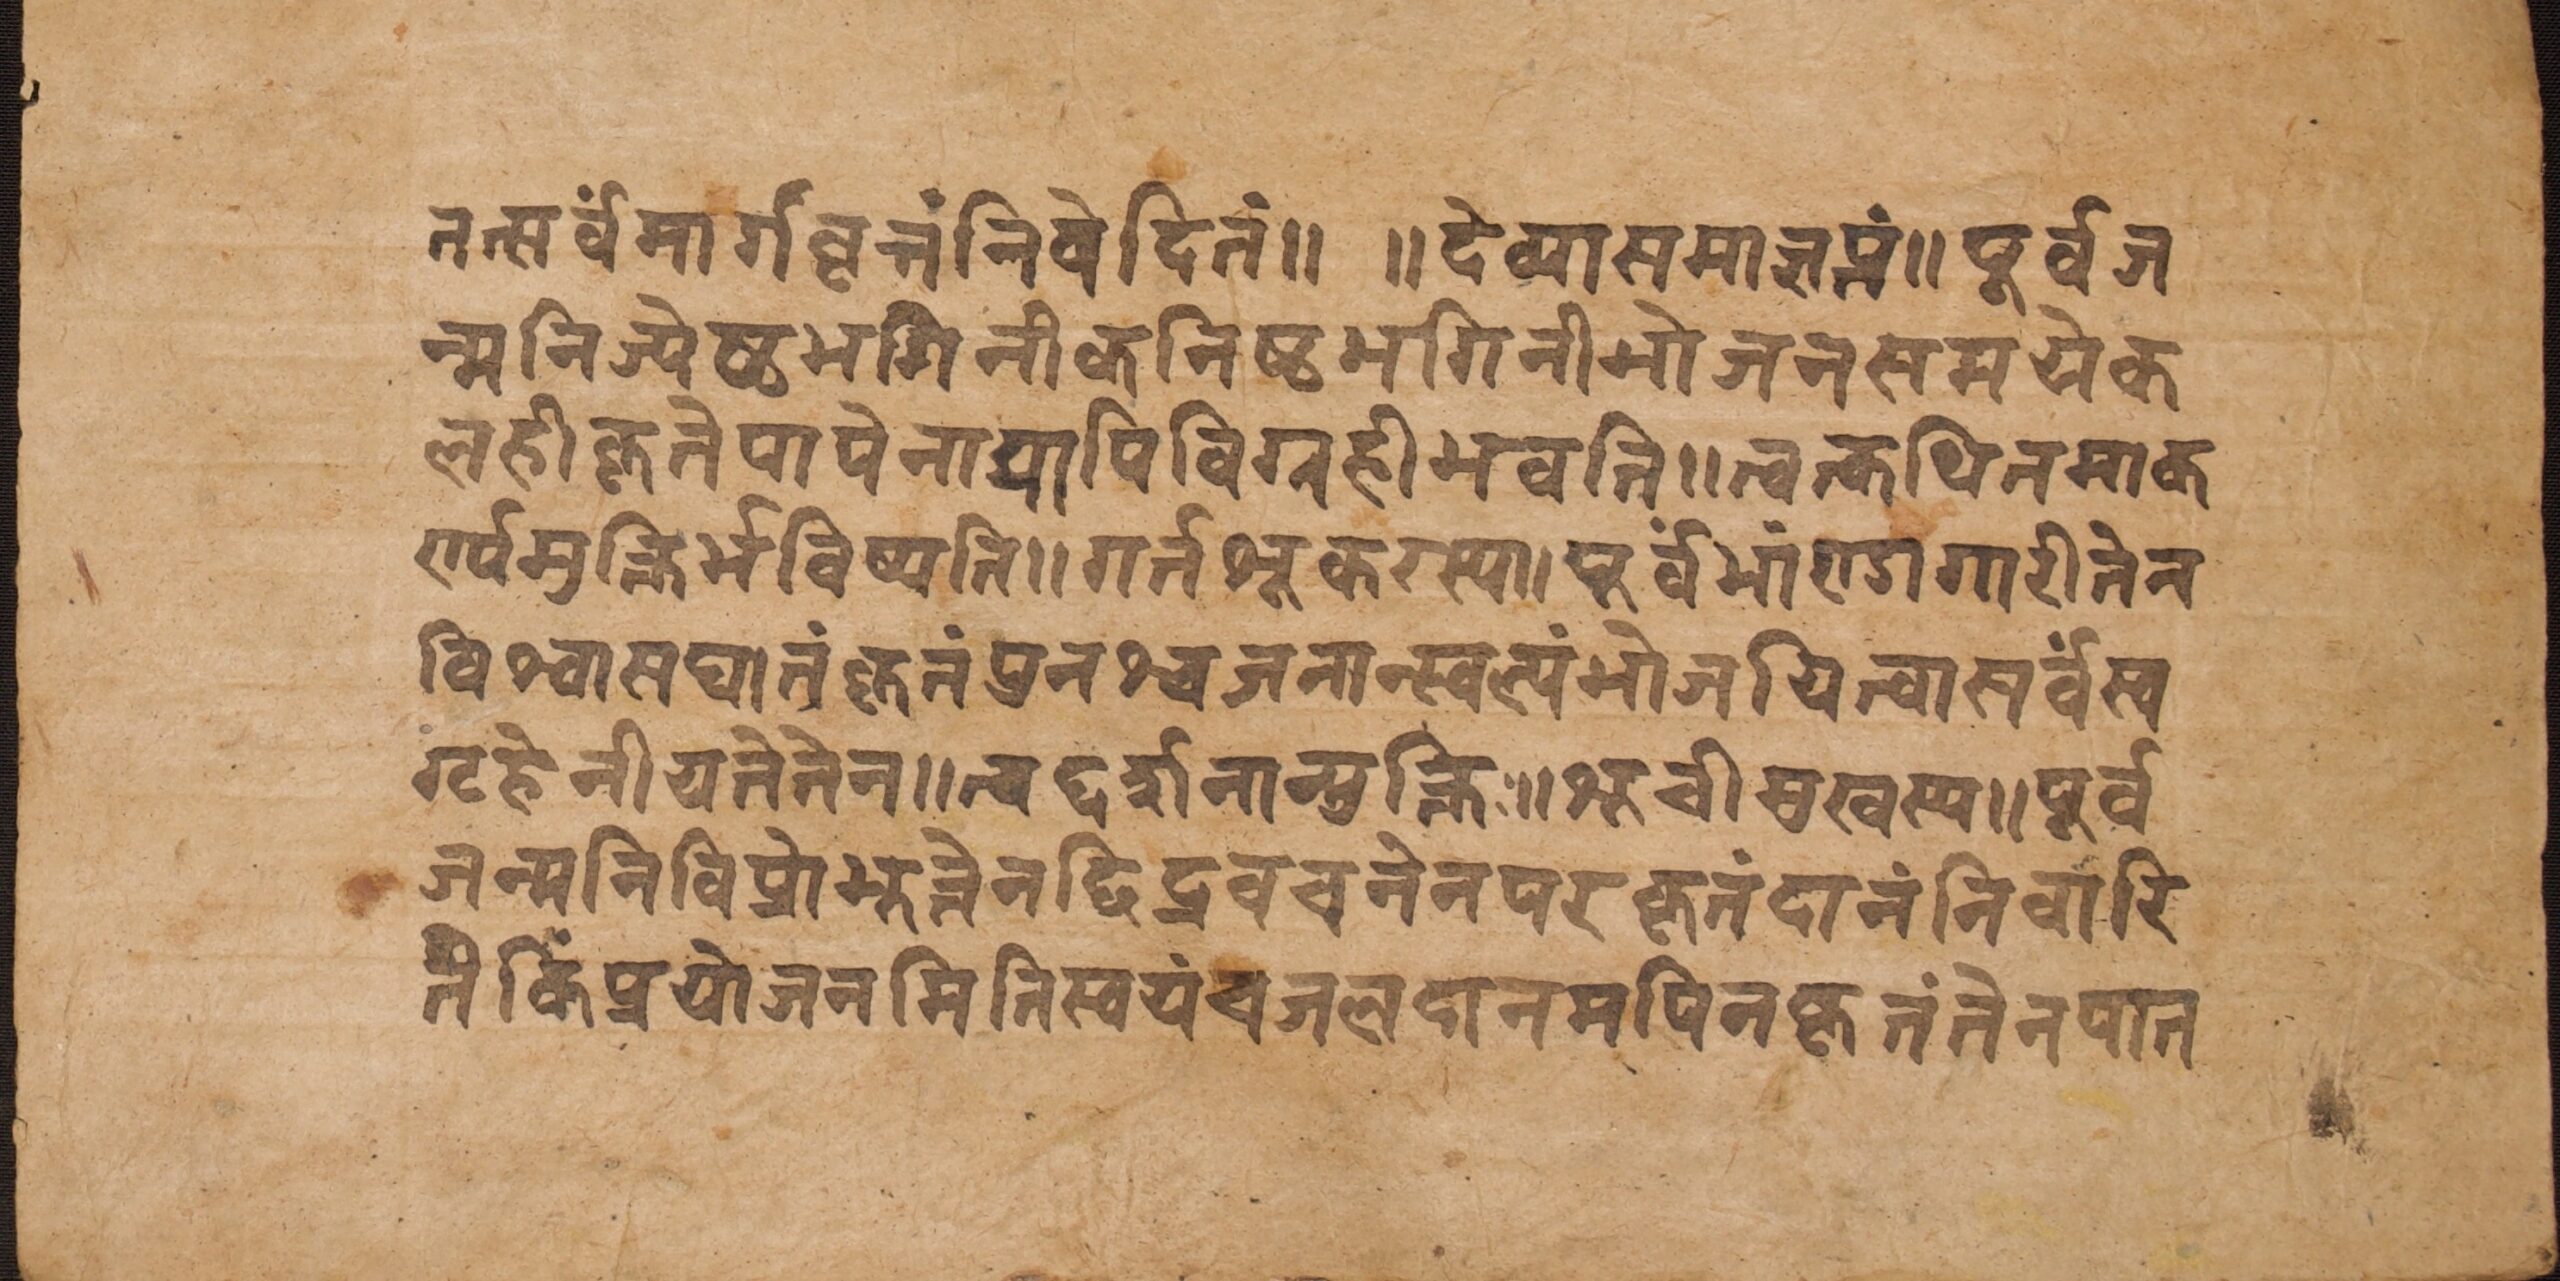 तत्सर्वंमार्गवृत्तंनिवेदितं॥ ॥देव्यासमाज्ञप्तं॥पूर्वज
न्मनिज्येष्ठभगिनीकनिष्ठभगिनीभोजनसमयेक
लहीकृतेपापेनाद्यापिविग्रहीभवन्ति॥त्वत्कथितमाक
र्ण्यमुक्तिर्भविष्यति॥गर्तशूकरस्या॥पूर्वंभांण्डागारीतेन
विश्वासघातंकृतंपुनश्चजनान्स्वल्पंभोजयित्वासर्वंस्व
गृहेनीयतेतेन॥त्वद्दर्शनान्मुक्तिः॥शूचीमुखस्य॥पूर्व
जन्मनिविप्रोभूत्तेनछिद्रवचनेनपरकृतंदानंनिवारि
तंकिंप्रयोजनमितिस्वयंचजलदानमपिनकृतंतेनपात